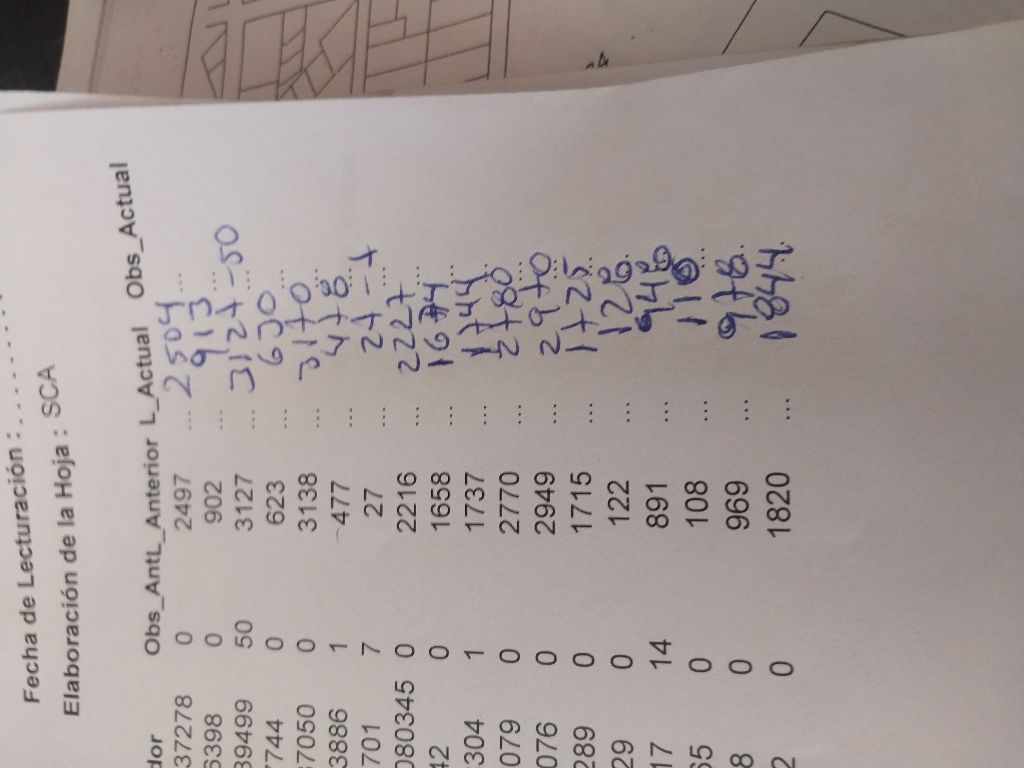 Fecha de Lecturación : . . . . . . . . . .
Elaboración de la Hoja : SCA
dor Obs_AntL_Anterior L_Actual Obs_Actual
37278 0 2497 ... 2504 ...
6398 0 902 ... 913 ...
39499 50 3127 ... 3127-50 ...
7744 0 623 ... 630 ...
37050 0 3138 ... 3170 ...
3886 1 477 ... 478 ...
701 7 27 ... 27-7 ...
080345 0 2216 ... 2227 ...
42 0 1658 ... ...
304 1 1737 ... 1744 ...
079 0 2770 ... 2780 ...
076 0 2949 ... 2970 ...
289 0 1715 ... 1725 ...
29 0 122 ... 128 ...
17 14 891 ... ...
65 0 108 ... 116 ...
8 0 969 ... 978 ...
2 0 1820 ... 1844 ...